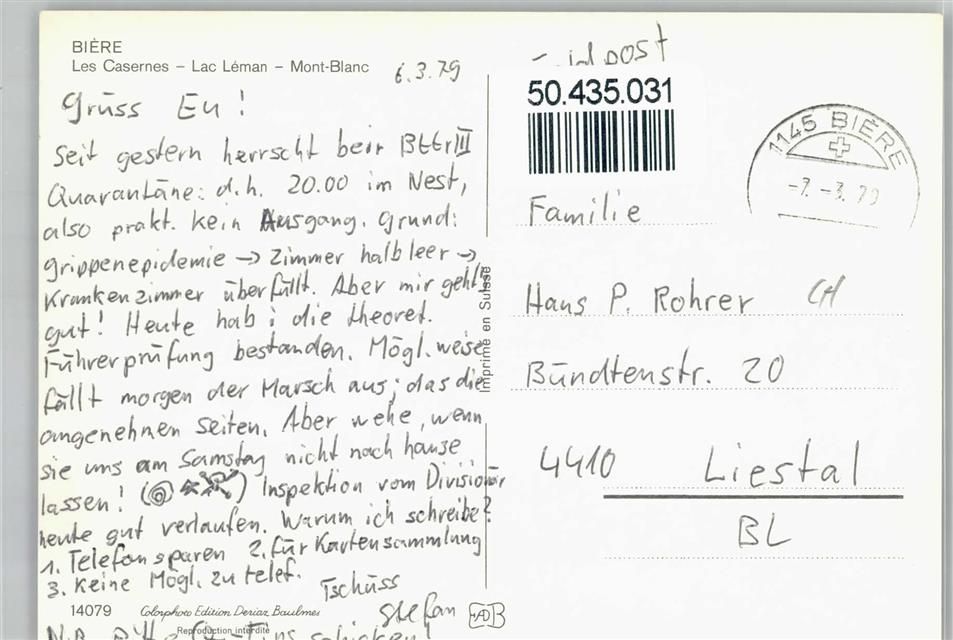 BIÈRE
Les Casernes – Lac Léman – Mont-Blanc
6.3.79
Grüss Eu!
Seit gestern herrscht beir Bttr III
Quarantäne: d.h. 20.00 im Nest,
also prakt. kein Ausgang. Grund:
Grippenepidemie → Zimmer halbleer →
Krankenzimmer überfüllt. Aber mir geht's
gut! Heute hab i die theoret.
Führerprüfung bestanden. Mögl.weise
fällt morgen der Marsch aus; das die
angenehmen Seiten. Aber wehe, wenn
sie uns am Samstag nicht nach hause
lassen! ( ) Inspektion vom Divisionär
heute gut verlaufen. Warum ich schreibe?
1. Telefon sparen 2. für Kartensammlung
3. Keine Mögl. zu telef.
Tschüss
Stefan
14079 Colorphoto Edition Deriaz Baulmes
Reproduction interdite
N.B. Bitte
schicken
Imprimé en Suisse
50.435.031
1145 BIÈRE
-7.-3.79
Familie
Hans P. Rohrer CH
Bündtenstr. 20
4410 Liestal
BL